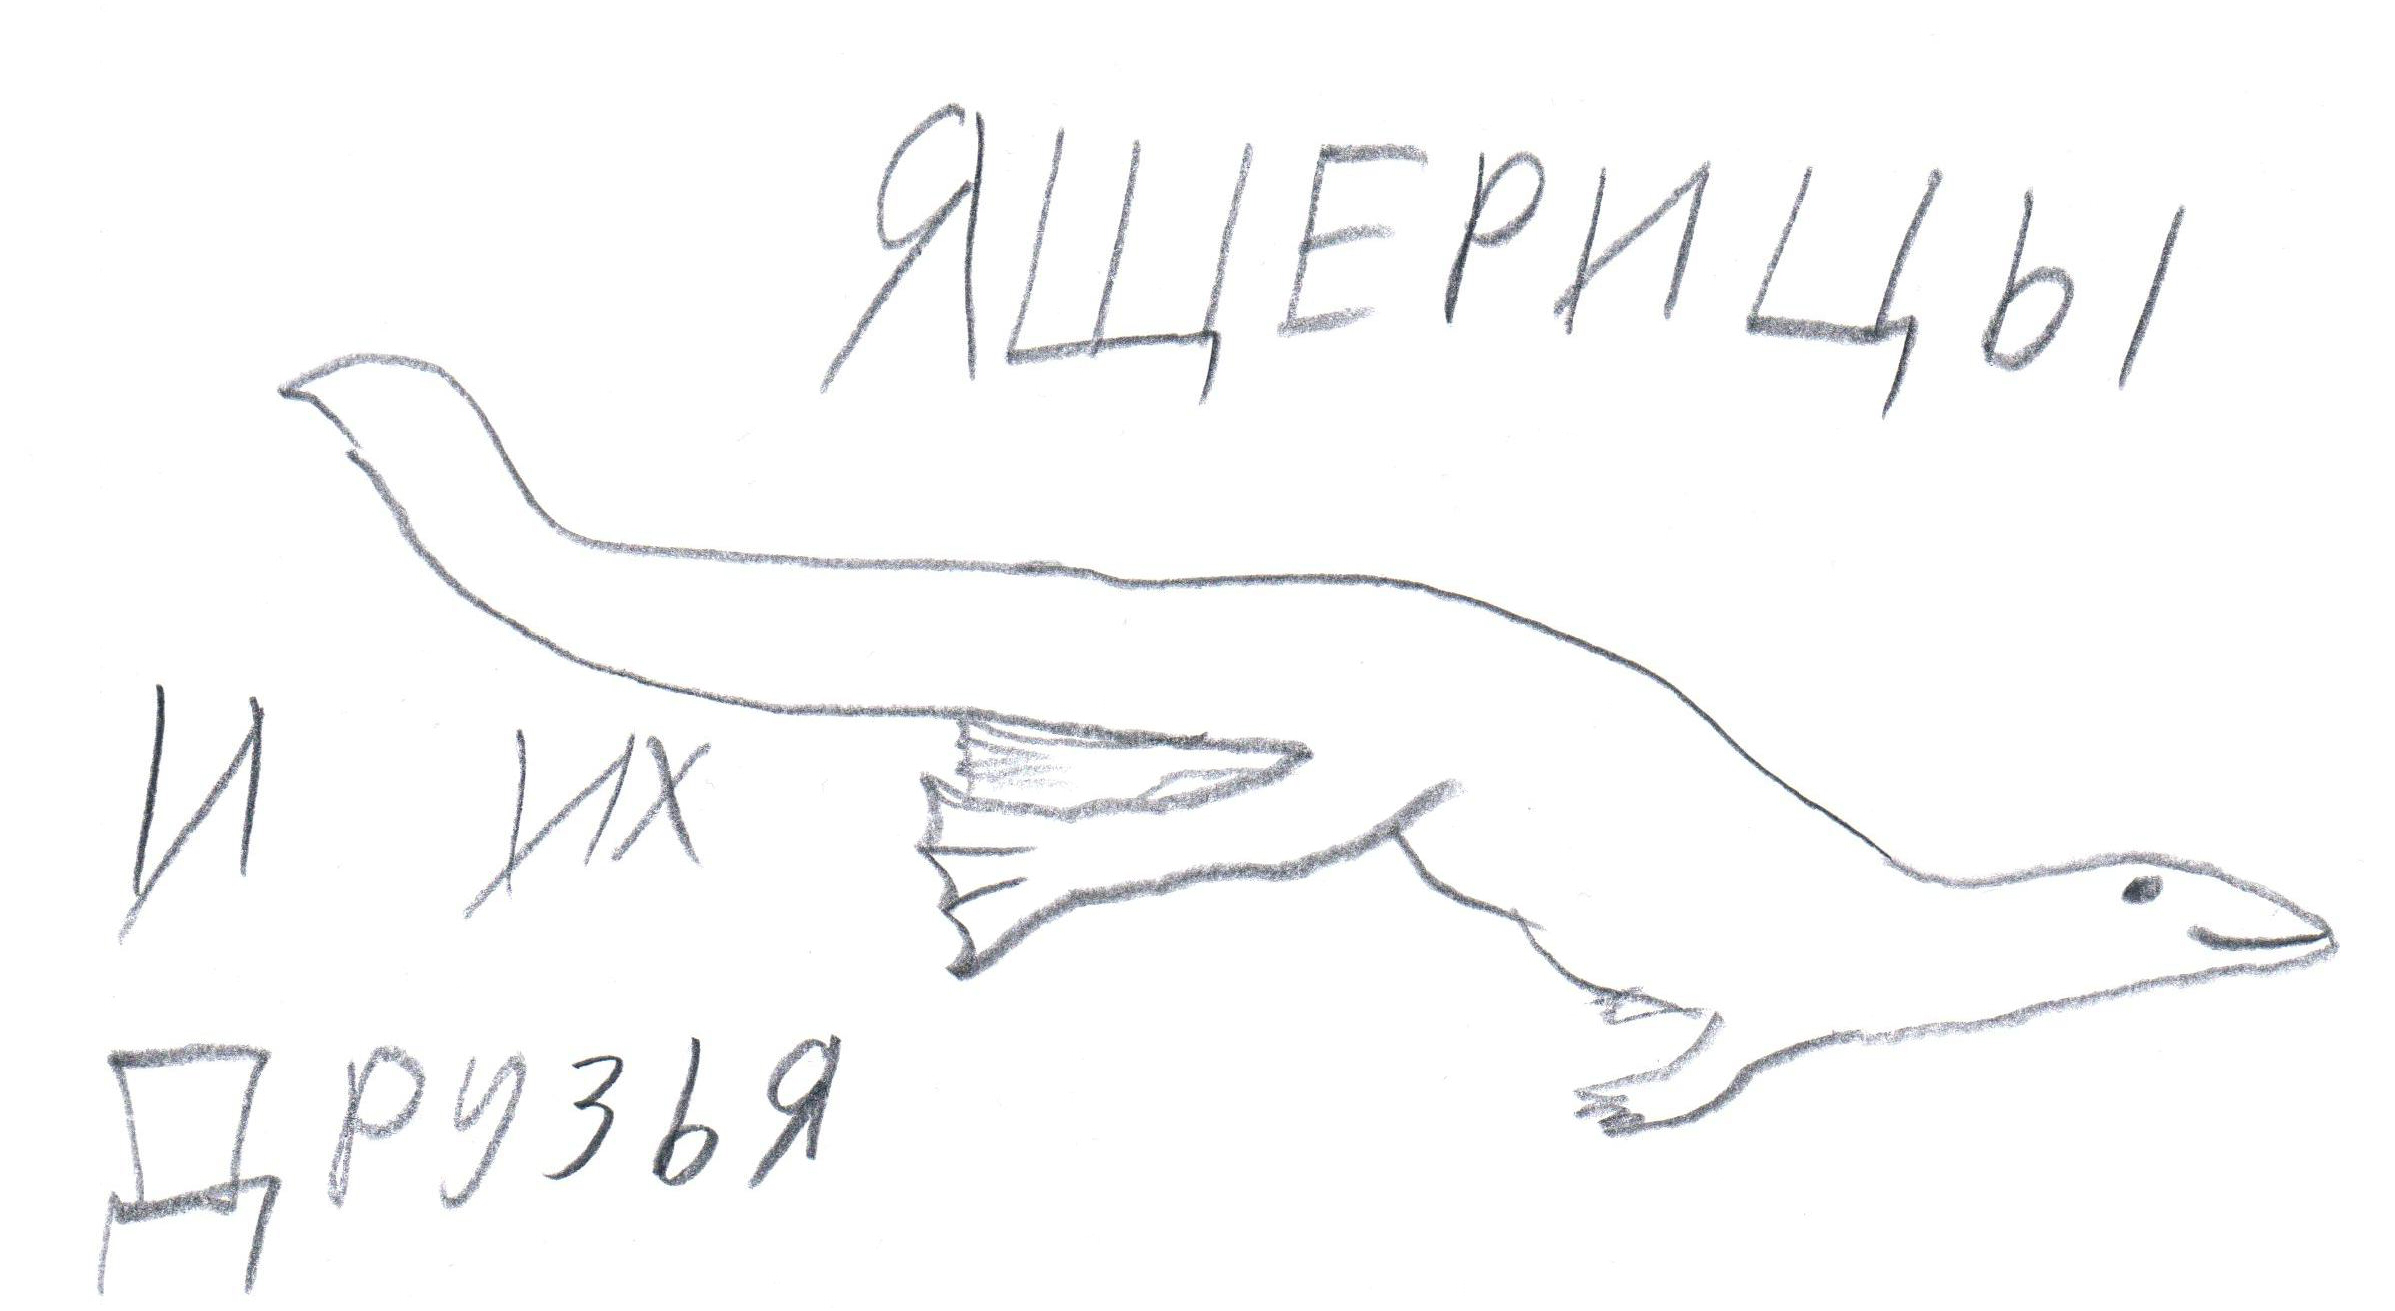 ЯЩЕРИЦЫ
И ИХ
ДРУЗЬЯ